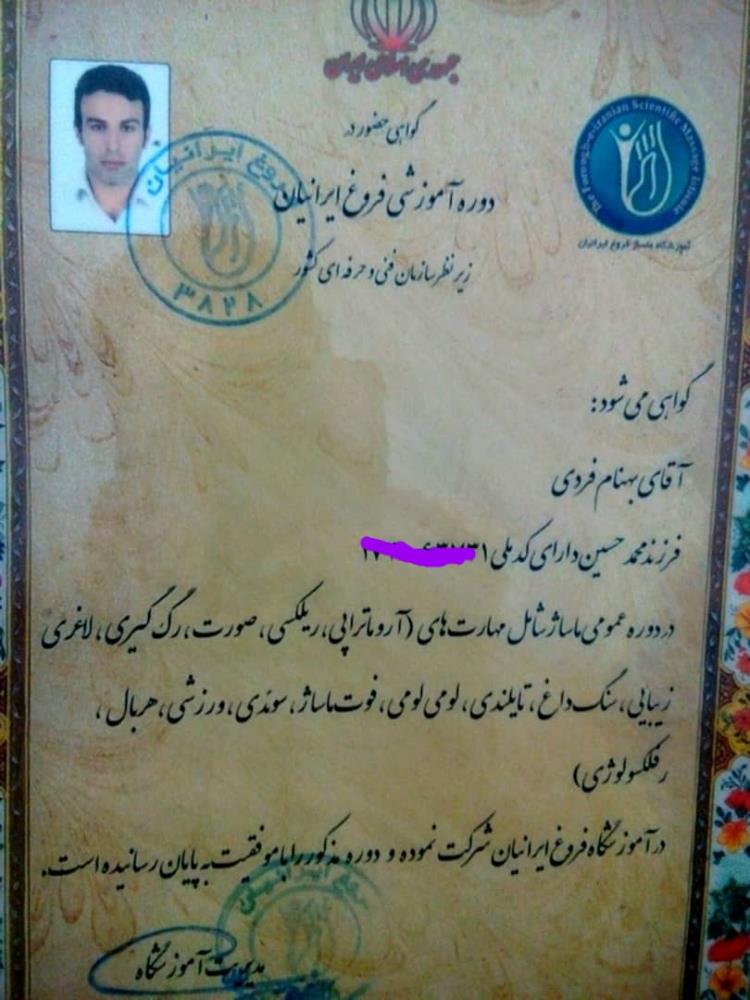 جمهوری اسلامی ایران
گواهی حضور در
The Forough-e-iranian Scientific Massage
دوره آموزشی فروغ ایرانیان
آموزشگاه ماساژ فروغ ایرانیان
زیر نظر سازمان فنی و حرفه ای کشور
فروغ ایرانیان
۳۸۲۸
گواهی می شود:
آقای بهنام فردی
فرزند محمد حسین دارای کد ملی
در دوره عمومی ماساژ شامل مهارت های (آروماتراپی، ریلکسی، صورت، رگ گیری، لاغری
زیبایی، سنگ داغ، تایلندی، لومی لومی، فوت ماساژ، سوئدی، ورزشی، هربال،
رفلکسولوژی)
در آموزشگاه فروغ ایرانیان شرکت نموده و دوره مذکور را با موفقیت به پایان رسانیده است.
فروغ ایرانیان
مدیریت آموزشگاه